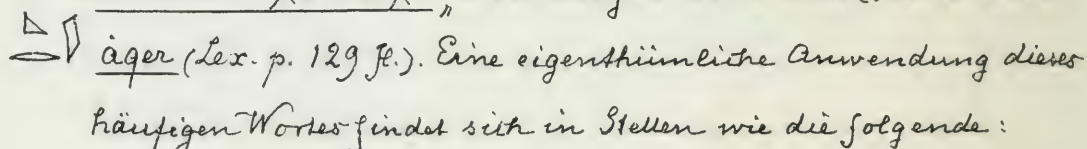 𓇋𓈎𓂋 àqer (Lex. p. 129 fl.). Eine eigenthümliche Anwendung dieses
häufigen Wortes findet sich in Stellen wie die folgende: